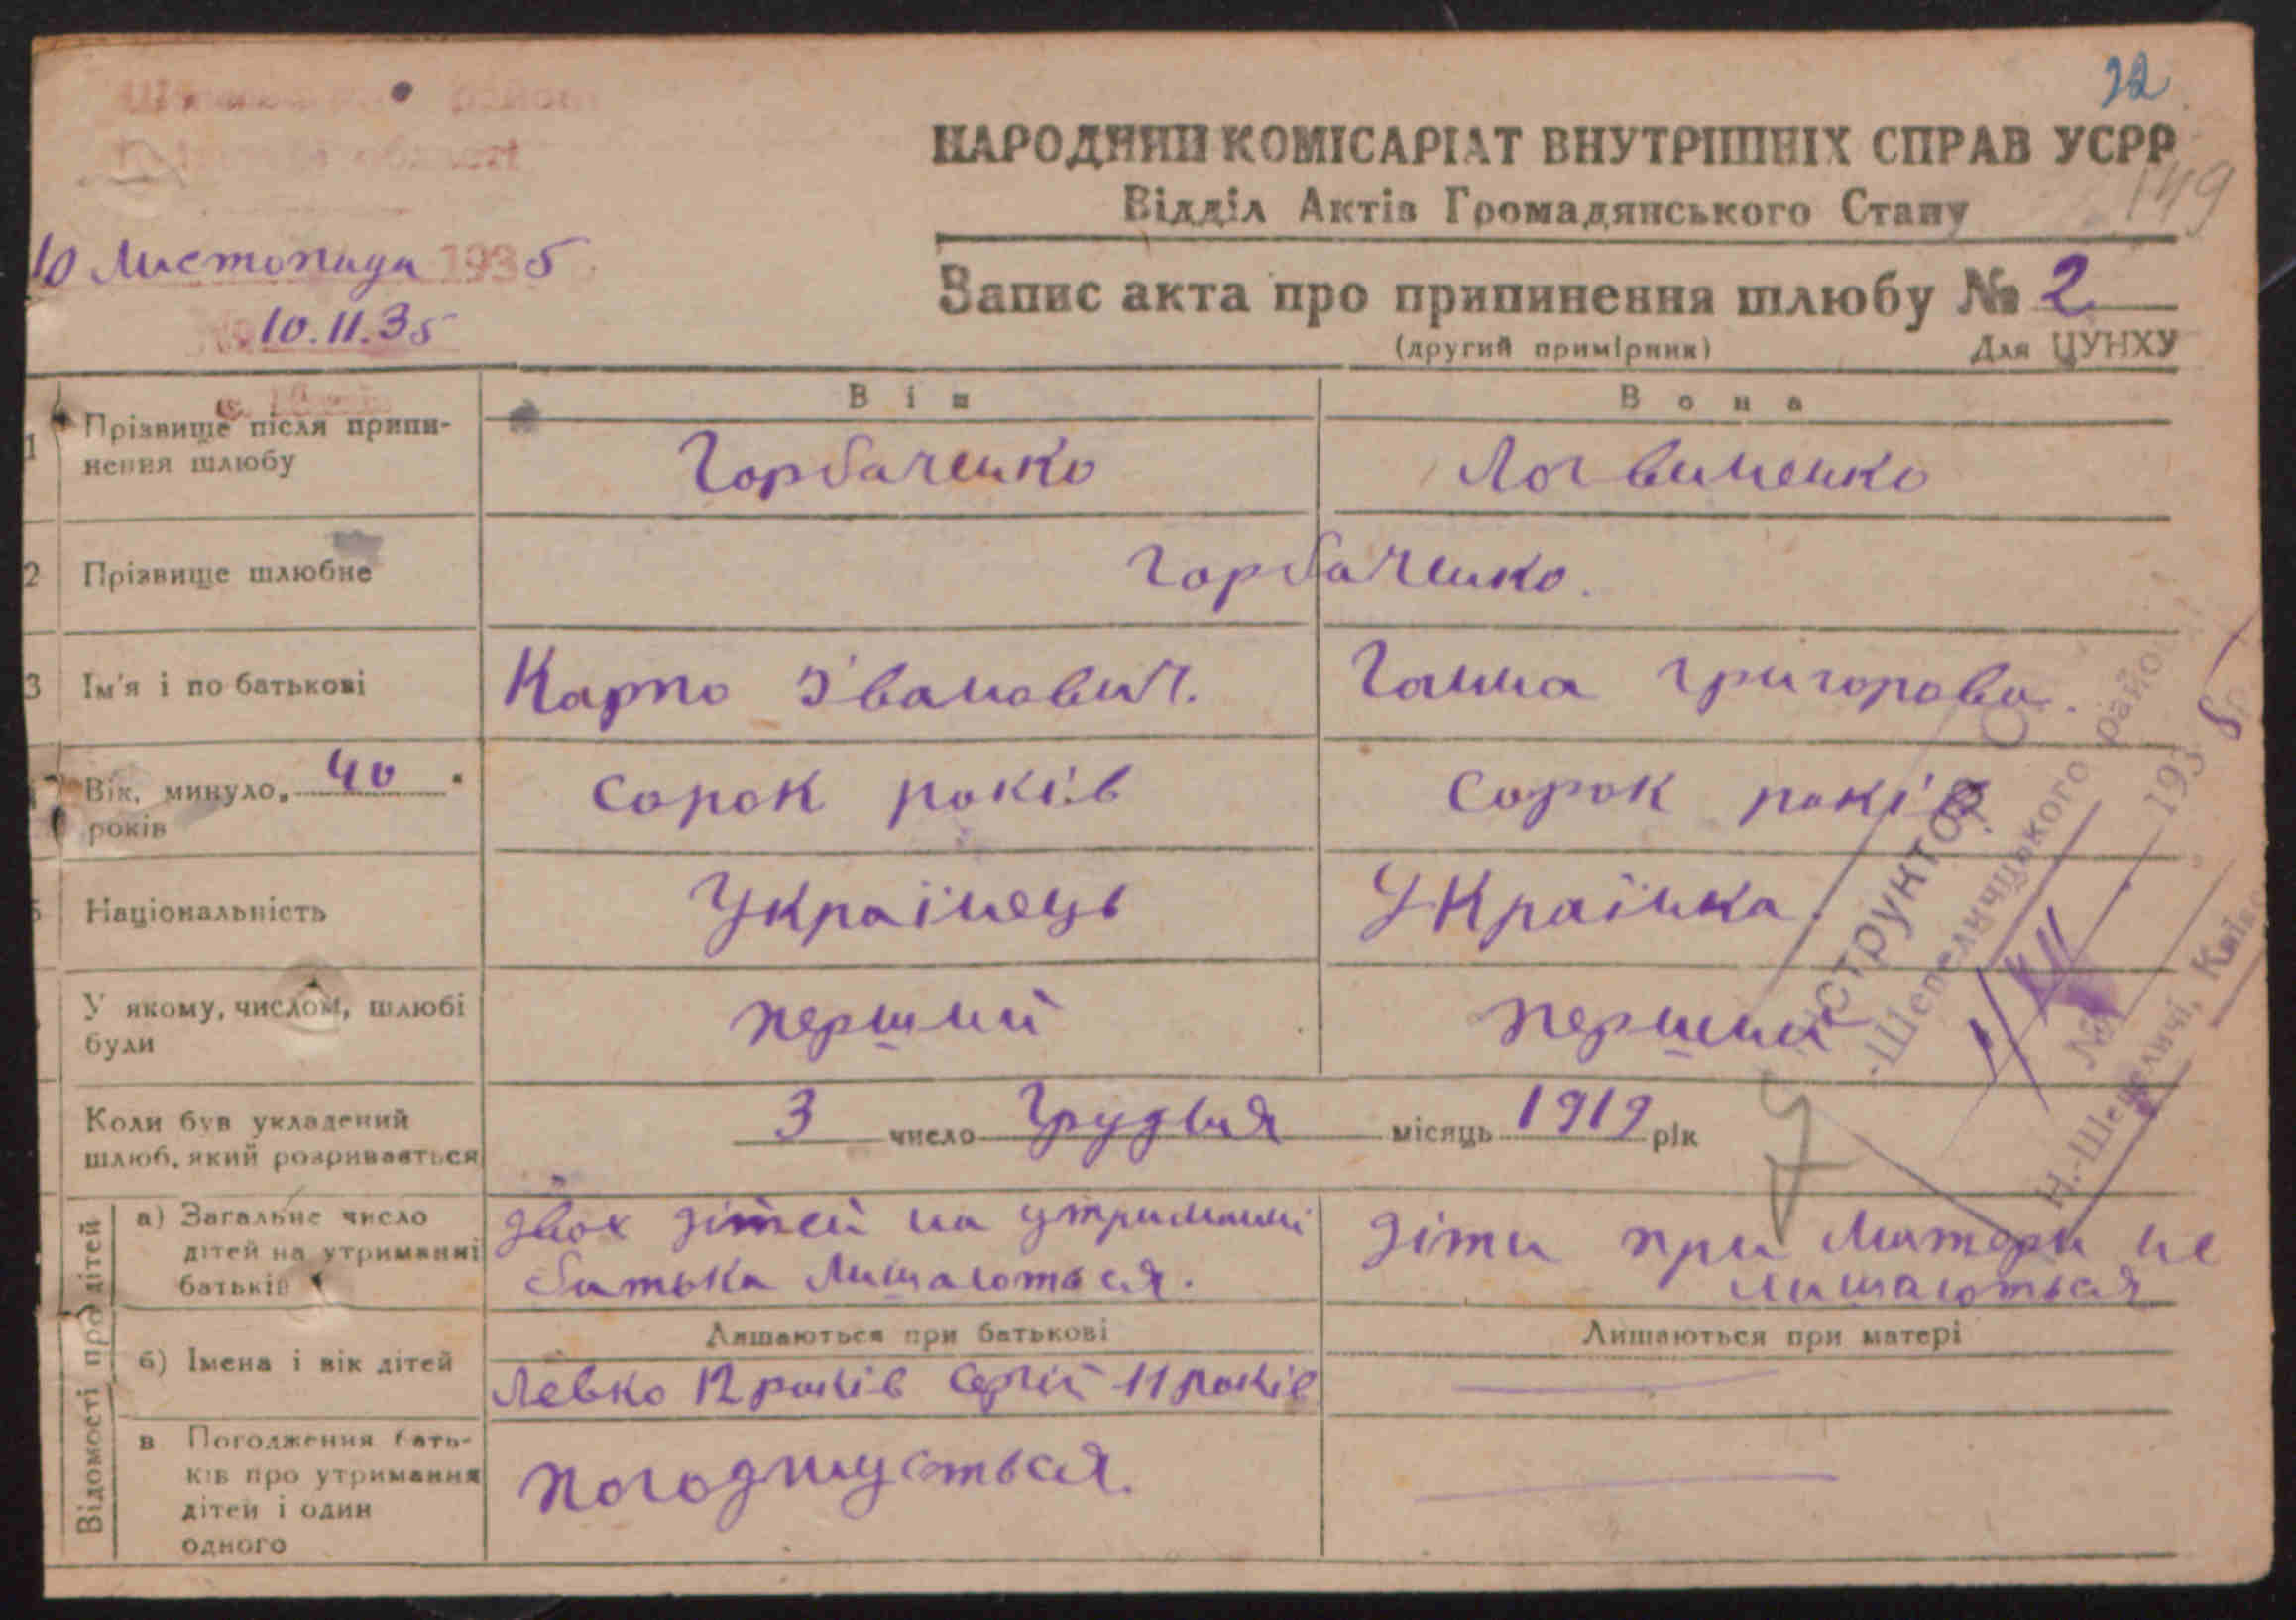 22
НАРОДНИЙ КОМІСАРІАТ ВНУТРІШНІХ СПРАВ УСРР
149
Відділ Актів Громадянського Стану
10 Листопада 1935
Запис акта про припинення шлюбу № 2
10.11.35
(другий примірник) Для ЦУНХУ
Він Вона
1 Прізвище після припи-
нення шлюбу
Горбаченко Логвиненко
2 Прізвище шлюбне Горбаченко.
3 Ім'я і по батькові Карпо Іванович. Ганна Григорова.
Вік, минуло 40
років
сорок років сорок років
Національність Українець Українка
У якому, числом, шлюбі
були
перший перший
Коли був укладений
шлюб, який розривається
3 число Грудня місяць 1919 рік
Відомості про дітей
а) Загальне число
дітей на утриманні
батьків
двох дітей на утриманні
батька лишаються.
діти при матери не
лишаються
Лишаються при батькові Лишаються при матері
б) Імена і вік дітей Левко 12 років Сергій 11 років
в Погодження бать-
ків про утримання
дітей і один
одного
погоджуються.
Інструктор
Шепеличцького району
1/XII 1935 р.
№
Н.-Шепеличі, Київ